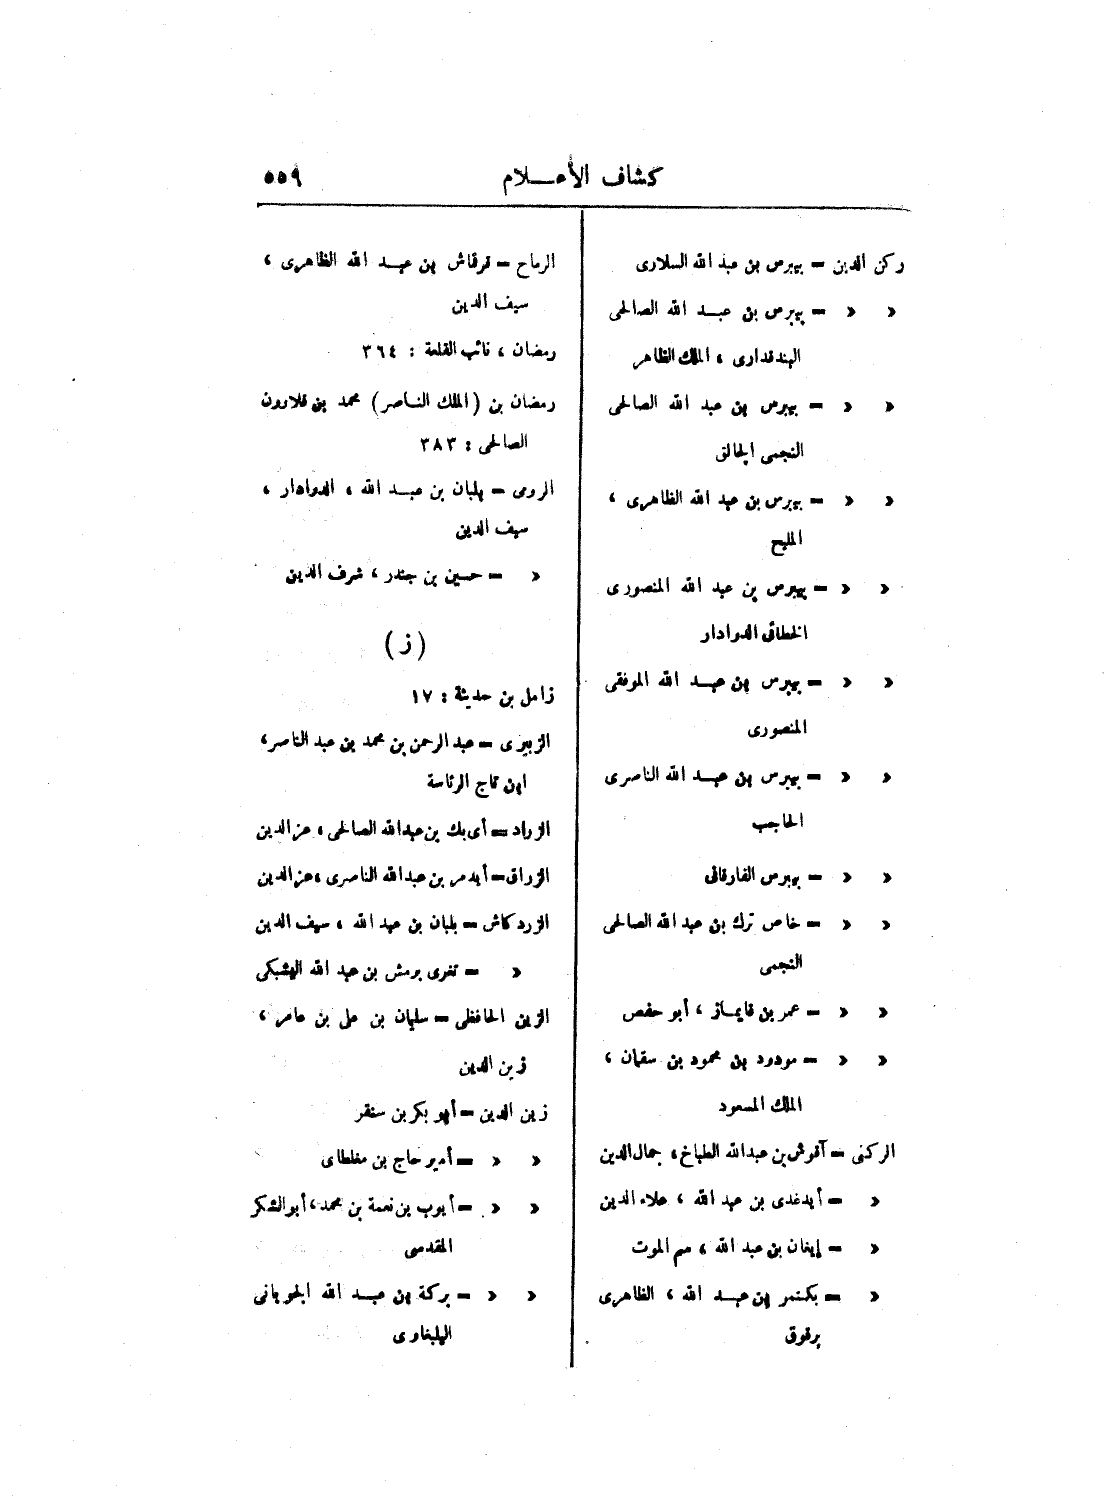 كشاف الأعــلام
٥٥٩
ركن الدين – بيبرس بن عبد الله السلارى
« « – بيبرس بن عبــد الله الصالحى
البندقدارى ، الملك الظاهر
« « – بيبرس بن عبد الله الصالحى
النجمى الجالق
« « – بيبرس بن عبد الله الظاهرى ،
المليح
« « – بيبرس بن عبد الله المنصورى
الخطائى الدوادار
« « – بيبرس بن عبــد الله الموفقى
المنصورى
« « – بيبرس بن عبــد الله الناصرى
الحاجب
« « – بيبرس الفارقانى
« « – خاص ترك بن عبد الله الصالحى
النجمى
« « – عمر بن قايمــاز ، أبو حفص
« « – مودود بن محمود بن سقمان ،
الملك المسعود
الركنى – آقوش بن عبدالله الطباخ ، جمال الدين
« – أيدغدى بن عبد الله ، علاء الدين
« – إيغان بن عبد الله ، سم الموت
« – بكتمر بن عبــد الله ، الظاهرى
برقوق
الرماح – قرقماش بن عبــد الله الظاهرى ،
سيف الدين
رمضان ، نائب القلعة : ٣٦٤
رمضان بن (الملك النــاصر) محمد بن قلاوون
الصالحى : ٣٨٣
الرومى – بلبان بن عبــد الله ، الدوادار ،
سيف الدين
« – حسين بن جندر ، شرف الدين
(ز)
زامل بن حديثة : ١٧
الزبيرى – عبد الرحمن بن محمد بن عبد الناصر ،
ابن تاج الرئاسة
الزراد – أى بك بن عبدالله الصالحى ، عز الدين
الزراق – أيدمر بن عبدالله الناصرى ، عز الدين
الزردكاش – بلبان بن عبد الله ، سيف الدين
« – تغرى برمش بن عبد الله اليشبكى
الزين الحافظى – سليمان بن على بن عامر ،
زين الدين
زين الدين – أبو بكر بن سنقر
« « – أمير حاج بن مغلطاى
« « – أيوب بن نعمة بن محمد ، أبو الشكر
المقدسى
« « – بركة بن عبــد الله الجوبانى
اليلبغاوى